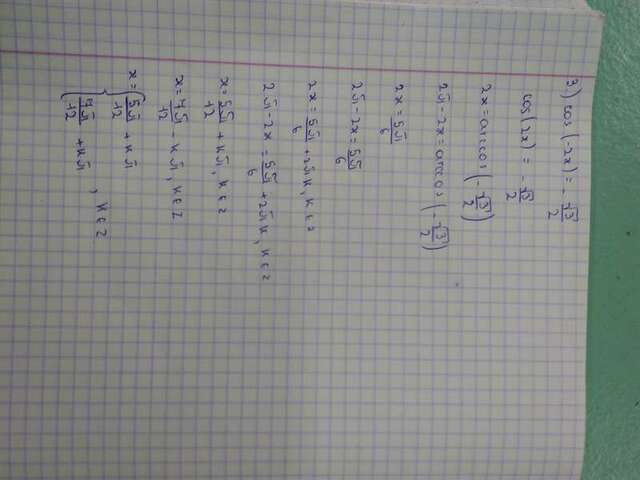 3) cos(-2x) = -√3/2
cos(2x) = -√3/2
2x = arccos(-√3/2)
2π - 2x = arccos(-√3/2)
2x = 5π/6
2π - 2x = 5π/6
2x = 5π/6 + 2πk, k ∈ z
2π - 2x = 5π/6 + 2πk, k ∈ z
x = 5π/12 + kπ, k ∈ z
x = 7π/12 - kπ, k ∈ z
x = { 5π/12 + kπ
7π/12 + kπ , k ∈ z